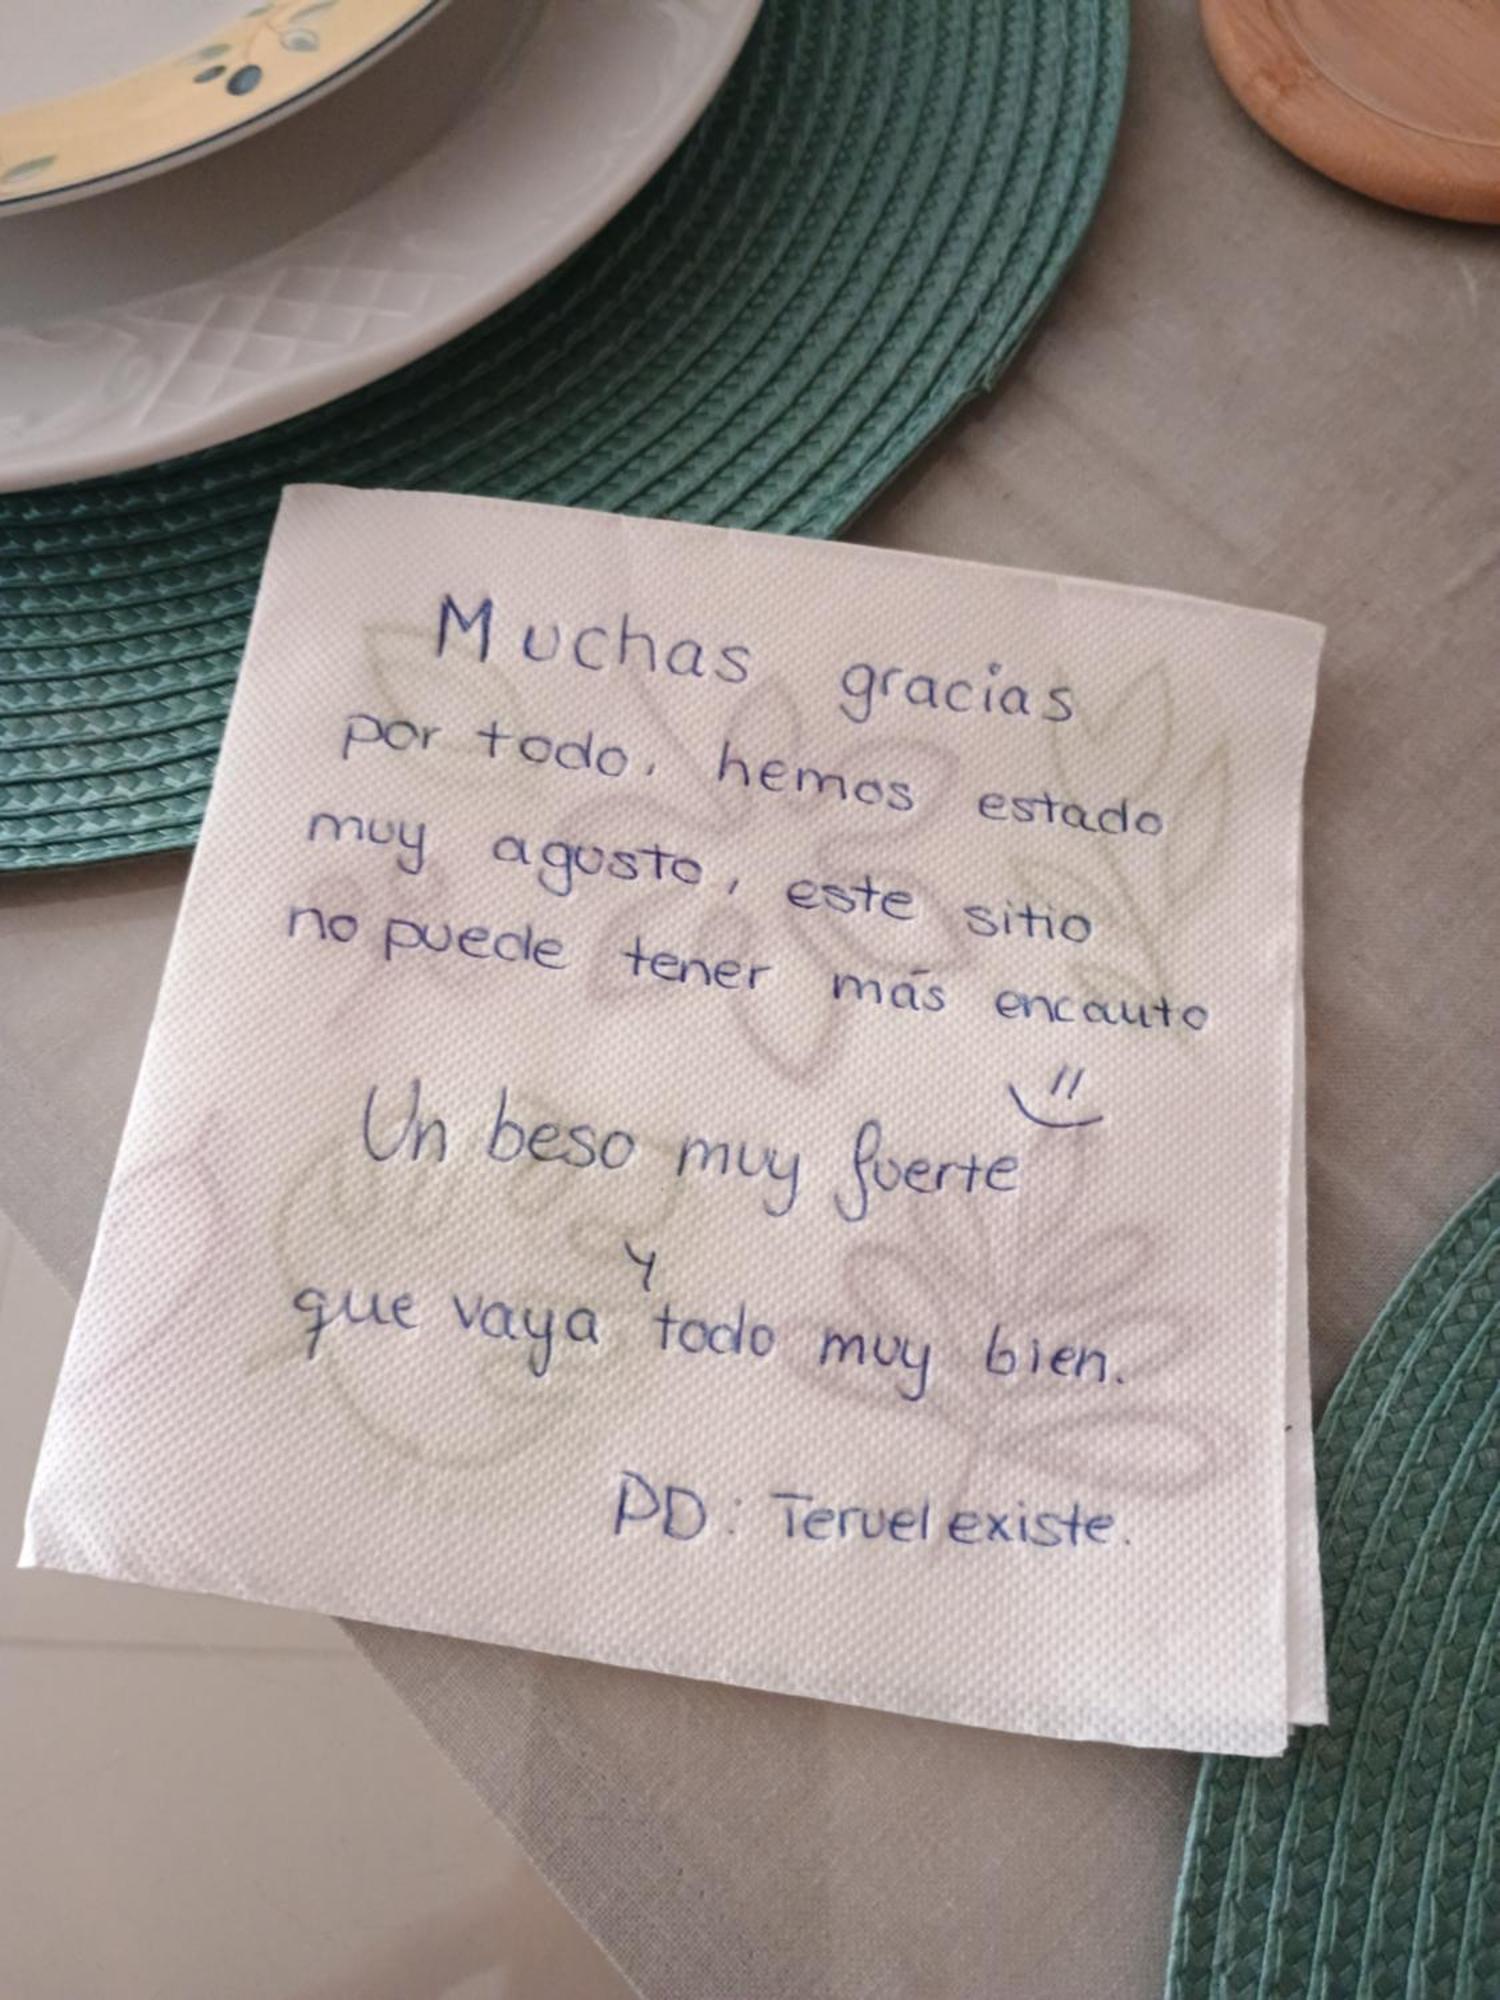 Muchas gracias
por todo, hemos estado
muy agusto, este sitio
no puede tener más encanto
Un beso muy fuerte
y
que vaya todo muy bien.
PD: Teruel existe.